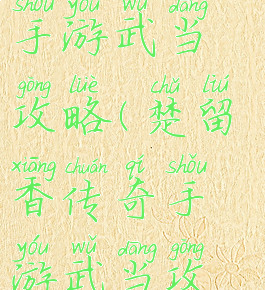 shǒu yóu wǔ dāng
手游武当
gōng lüè chǔ liú
攻略(楚留
xiāng chuán qí shǒu
香传奇手
yóu wǔ dāng gōng
游武当攻